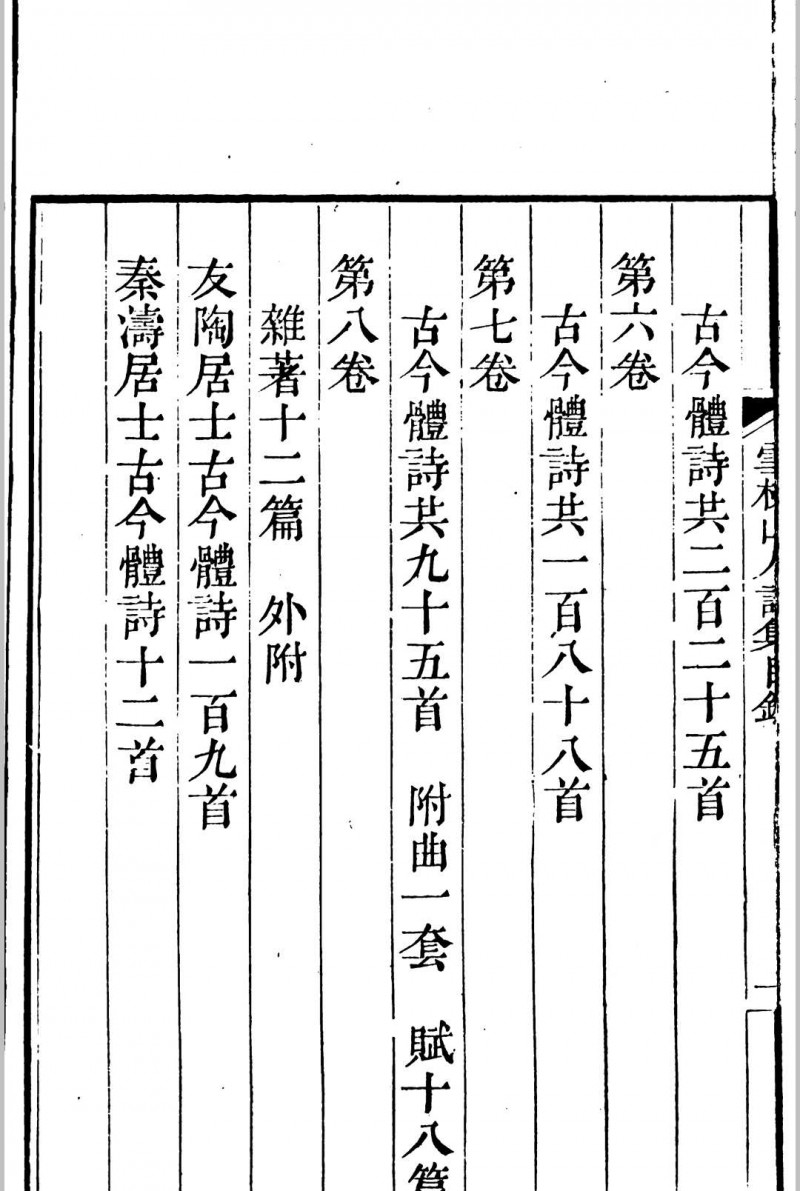 古今體詩共二百二十五首
第六卷
古今體詩共一百八十八首
第七卷
古今體詩共九十五首　附曲一套　賦十八篇
第八卷
雜著十二篇　外附
友陶居士古今體詩一百九首
秦濤居士古今體詩十二首
人詩集目錄
一